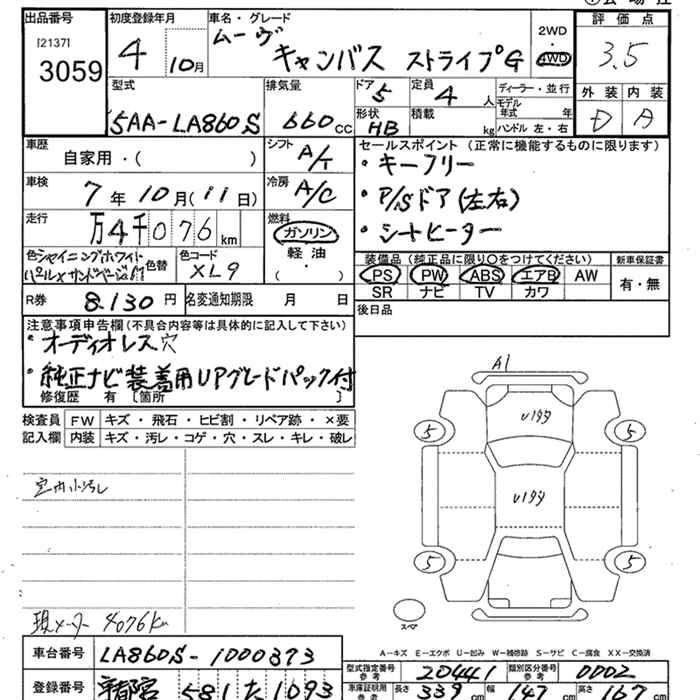 出品番号
[2137]
3059
初度登録年月
4 10月
車名・グレード
ムーヴ キャンバス ストライプG
2WD
・
4WD
評価点
3.5
外装 内装
D A
型式
5AA-LA860S
排気量
660cc
ドア 5
形状 HB
定員 4人
積載 kg
ディーラー・並行
モデル年式 年
ハンドル 左・右
車歴
自家用・( )
シフト A/T
車検
7年10月(11日)
冷房 A/C
走行
万4千076km
燃料
ガソリン
軽油
・
( )
色シャイニングホワイトパール×サンドベージュM 色替
色コード
XL9
R券 8,130円
名変通知期限 月 日
セールスポイント(正常に機能するものに限ります)
・キーフリー
・P/Sドア(左右)
・シートヒーター
装備品(純正品に限り○をつけてください)
PS PW ABS エアB AW
SR ナビ TV カワ
新車保証書
有・無
後日品
注意事項申告欄(不具合内容等は具体的に記入して下さい)
・オーディオレス穴
・純正ナビ装着用UPグレードパック付
修復歴 有 [箇所 ]
検査員記入欄
FW キズ・飛石・ヒビ割・リペア跡・×要
内装 キズ・汚レ・コゲ・穴・スレ・キレ・破レ
室内小汚レ
現メーター 4076km
A1
U1
U1
5 5
5 5
スペア
A-キズ E-エクボ U-凹み W-補修跡 S-サビ C-腐食 XX-交換済
車台番号 LA860S-1000373
登録番号 宇都宮 581 た 1093
型式指定番号 参考 20441
類別区分番号 参考 0002
車庫証明用 参考 長さ 339cm 幅 147cm 高さ 167cm